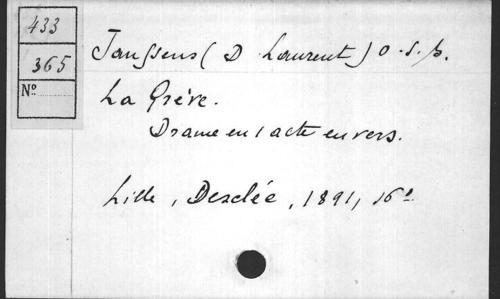 433
365
N°
Janssens (D Laurent) O.S.B.
La Grève.
Drame en 1 acte en vers.
Lille, Desclée, 1891, 16°